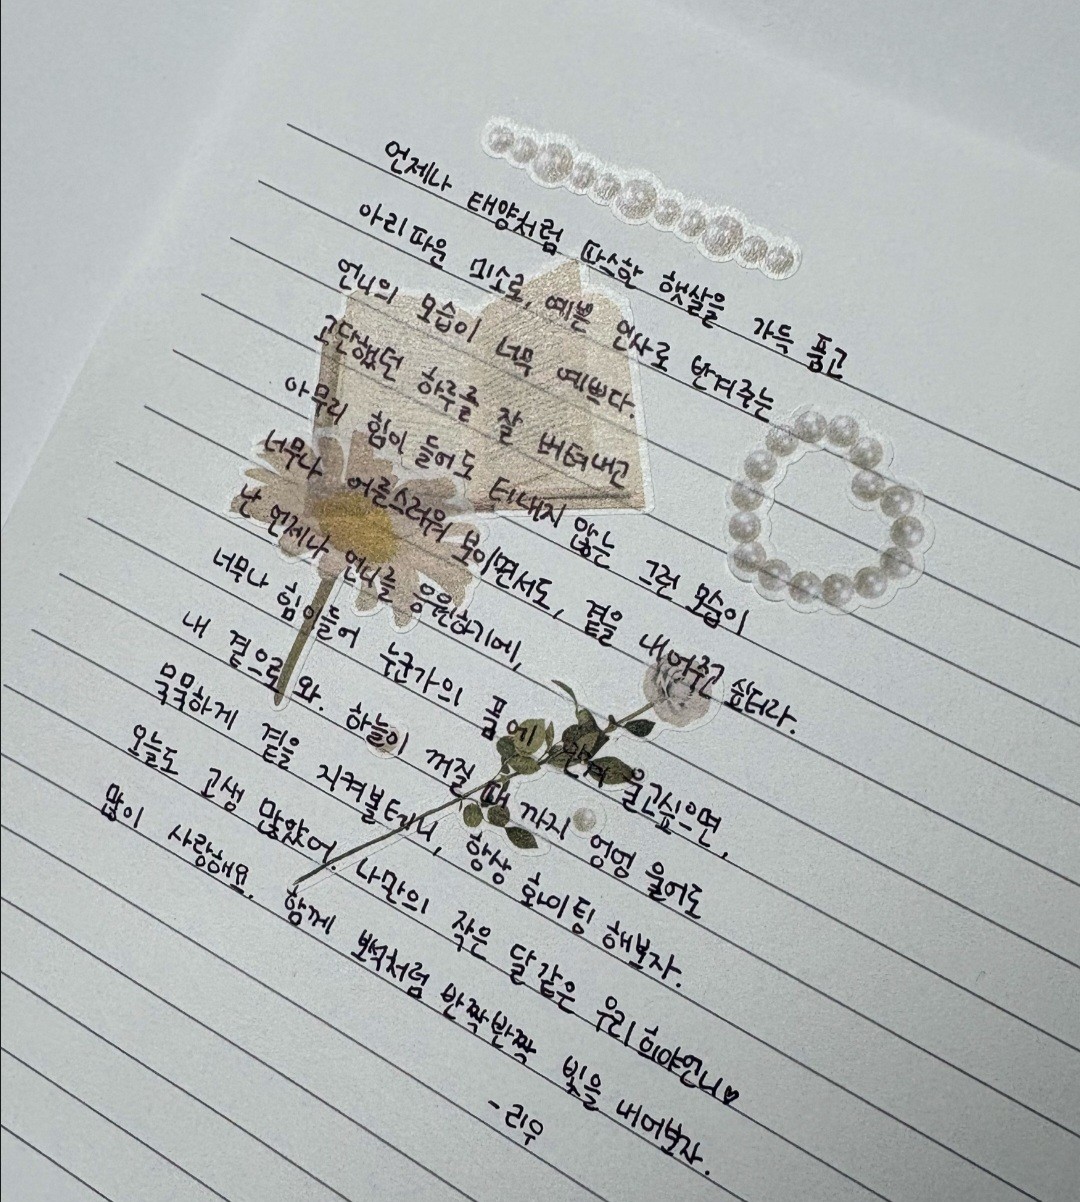 언제나 태양처럼 따스한 햇살을 가득 품고
아리따운 미소로, 예쁜 인사로 반겨주는
언니의 모습이 너무 예쁘다.
고단했던 하루를 잘 버텨내고
아무리 힘이 들어도 티내지 않는 그런 모습이
너무나 어른스러워 보이면서도, 곁을 내어주고 싶더라.
난 언제나 언니를 응원하기에,
너무나 힘이들어 누군가의 품에 안겨 울고싶으면,
내 곁으로 와. 하늘이 꺼질 때 까지 엉엉 울어도
묵묵하게 곁을 지켜볼테니, 항상 화이팅 해보자.
오늘도 고생 많았어. 나만의 작은 달같은 우리 희야언니♡
많이 사랑해요. 함께 보석처럼 반짝반짝 빛을 내어보자.
- 리우